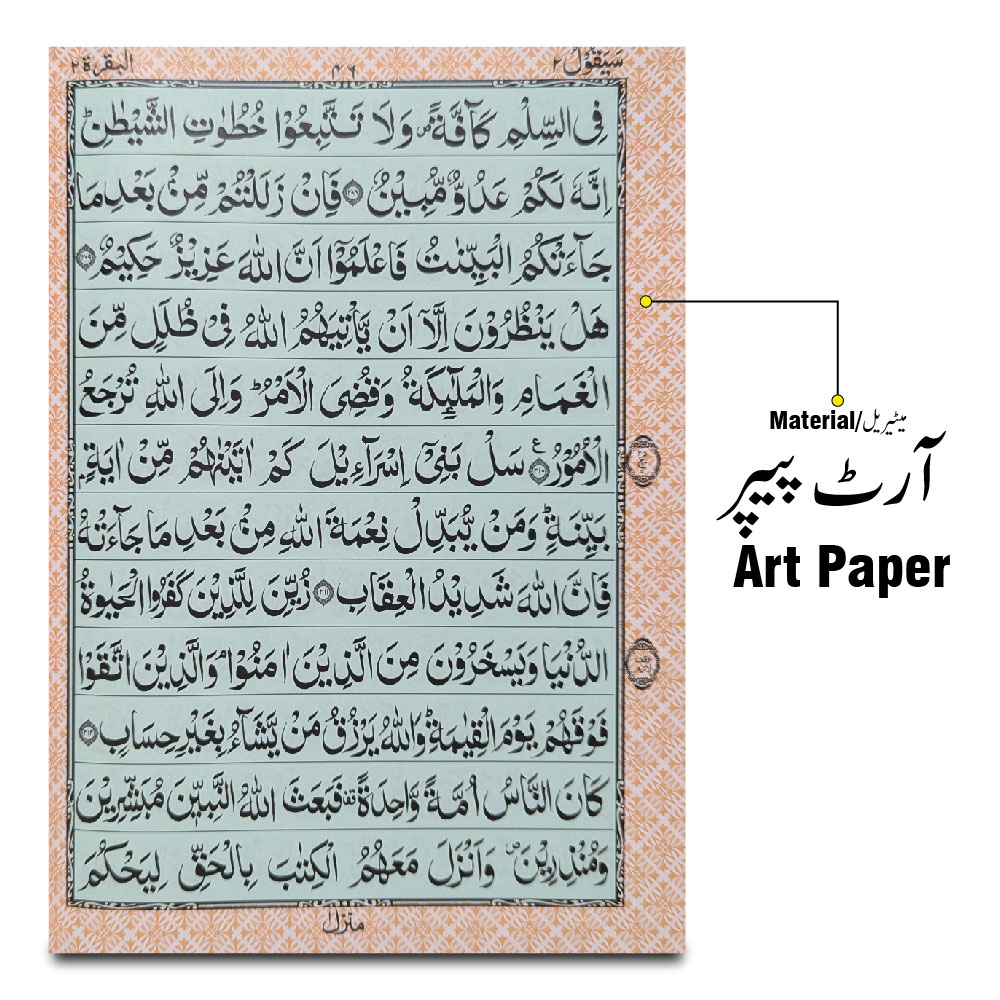 سَیَقُوْلُ ٢
٤٦
البقرة ٢
فِی السِّلْمِ كَآفَّةً ۪ وَلَا تَتَّبِعُوْا خُطُوٰتِ الشَّیْطٰنِ ؕ
اِنَّهٗ لَكُمْ عَدُوٌّ مُّبِیْنٌ ﴿٢٠٨﴾ فَاِنْ زَلَلْتُمْ مِّنْۢ بَعْدِ مَا
جَآءَتْكُمُ الْبَیِّنٰتُ فَاعْلَمُوْۤا اَنَّ اللّٰهَ عَزِیْزٌ حَكِیْمٌ ﴿٢٠٩﴾
هَلْ یَنْظُرُوْنَ اِلَّاۤ اَنْ یَّاْتِیَهُمُ اللّٰهُ فِیْ ظُلَلٍ مِّنَ
الْغَمَامِ وَالْمَلٰٓىِٕكَةُ وَقُضِیَ الْاَمْرُ ؕ وَاِلَی اللّٰهِ تُرْجَعُ
الْاُمُوْرُ ﴿٢١٠﴾ ع سَلْ بَنِیْۤ اِسْرَآءِیْلَ كَمْ اٰتَیْنٰهُمْ مِّنْ اٰیَةٍۭ
بَیِّنَةٍ ؕ وَمَنْ یُّبَدِّلْ نِعْمَةَ اللّٰهِ مِنْۢ بَعْدِ مَا جَآءَتْهُ
فَاِنَّ اللّٰهَ شَدِیْدُ الْعِقَابِ ﴿٢١١﴾ زُیِّنَ لِلَّذِیْنَ كَفَرُوا الْحَیٰوةُ
الدُّنْیَا وَیَسْخَرُوْنَ مِنَ الَّذِیْنَ اٰمَنُوْا ۘ وَالَّذِیْنَ اتَّقَوْا
فَوْقَهُمْ یَوْمَ الْقِیٰمَةِ ؕ وَاللّٰهُ یَرْزُقُ مَنْ یَّشَآءُ بِغَیْرِ حِسَابٍ ﴿٢١٢﴾
كَانَ النَّاسُ اُمَّةً وَّاحِدَةً ۫ فَبَعَثَ اللّٰهُ النَّبِیّٖنَ مُبَشِّرِیْنَ
وَمُنْذِرِیْنَ ۪ وَاَنْزَلَ مَعَهُمُ الْكِتٰبَ بِالْحَقِّ لِیَحْكُمَ
منزل
Material/میٹیریل
آرٹ پیپر
Art Paper